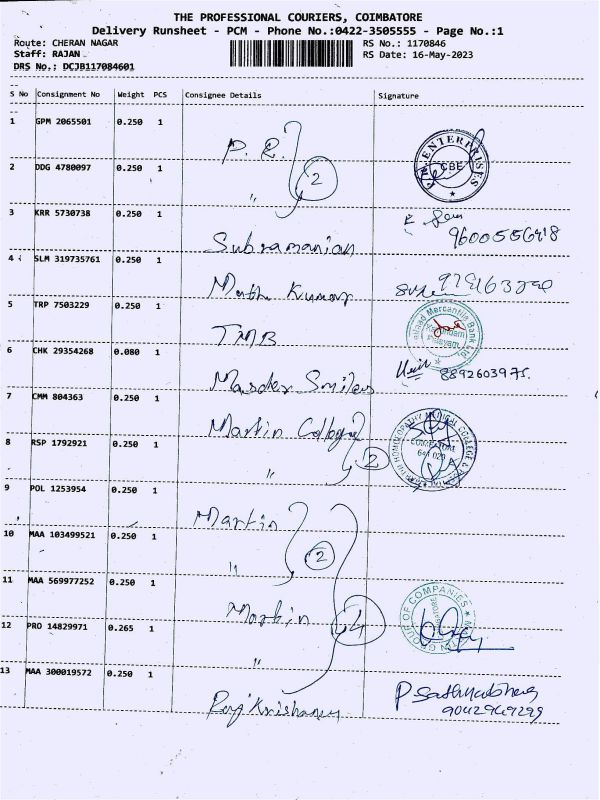 THE PROFESSIONAL COURIERS, COIMBATORE
Delivery Runsheet - PCM - Phone No.:0422-3505555 - Page No.:1
Route: CHERAN NAGAR RS No.: 1170846
Staff: RAJAN RS Date: 16-May-2023
DRS No.: DCJB117084601
S No Consignment No Weight PCS Consignee Details Signature
1 GPM 2065501 0.250 1 P. R.
ENTERPRISES CBE
2 DDG 4780097 0.250 1 " 2
3 KRR 5730738 0.250 1 Subramanian
4 SLM 319735761 0.250 1 Muthu Kumar
5 TRP 7503229 0.250 1 TMB
Mercantile Bank
6 CHK 29354268 0.080 1 Master Smiles 8892603975.
7 CMM 804363 0.250 1 Martin College
HOMOEOPATHY MEDICAL COLLEGE &
COIMBATORE
8 RSP 1792921 0.250 1 " 2
9 POL 1253954 0.250 1 Martin
10 MAA 103499521 0.250 1 " 2
11 MAA 569977252 0.250 1 Martin
GROUP OF COMPANIES ★ MARTIN
12 PRO 14829971 0.265 1 " 4
13 MAA 300019572 0.250 1